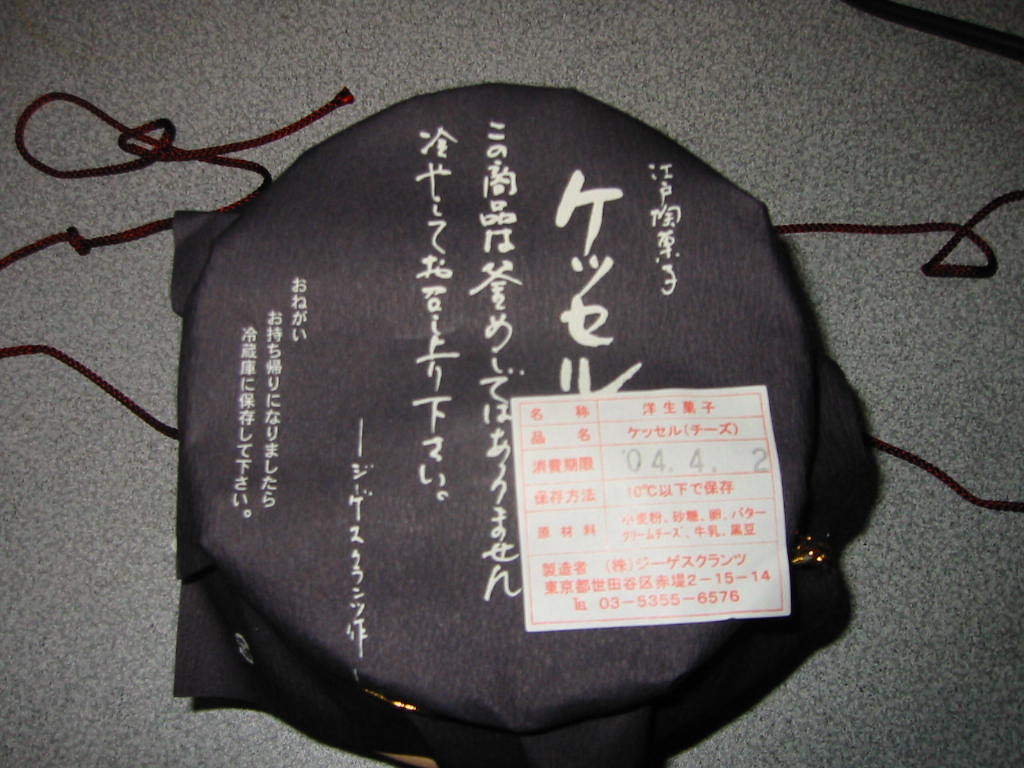 江戸陶菓子
ケッセル
この商品は釜めしではありません
冷やしてお召し上り下さい。
おねがい
お持ち帰りになりましたら
冷蔵庫に保存して下さい。
ージーゲスクランツ作ー
名称 洋生菓子
品名 ケッセル(チーズ)
消費期限 '04.4. 2
保存方法 10℃以下で保存
原材料 小麦粉、砂糖、卵、バター
クリームチーズ、牛乳、黒豆
製造者 (株)ジーゲスクランツ
東京都世田谷区赤堤2-15-14
TEL 03-5355-6576